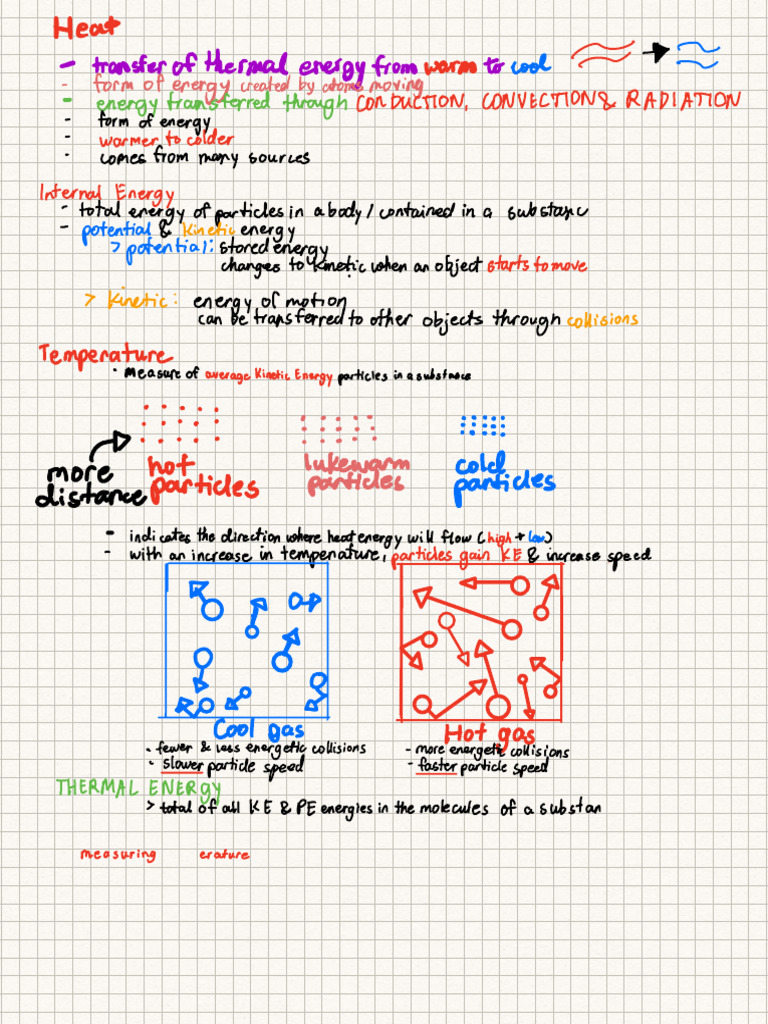 Heat
- transfer of thermal energy from warm to cool
- form of energy created by atoms moving
- energy transferred through CONDUCTION, CONVECTION & RADIATION
- form of energy
- warmer to colder
- comes from many sources
Internal Energy
- total energy of particles in a body / contained in a substanc
- potential & kinetic energy
> potential: stored energy
changes to kinetic when an object starts to move
> kinetic: energy of motion
can be transferred to other objects through collisions
Temperature
• measure of average Kinetic Energy particles in a substance
more distance
hot particles
lukewarm particles
cold particles
- indicates the direction where heat energy will flow (high → low)
- with an increase in temperature, particles gain KE & increase speed
Cool gas
• fewer & less energetic collisions
• slower particle speed
Hot gas
- more energetic collisions
- faster particle speed
THERMAL ENERGY
> total of all KE & PE energies in the molecules of a substan
measuring erature